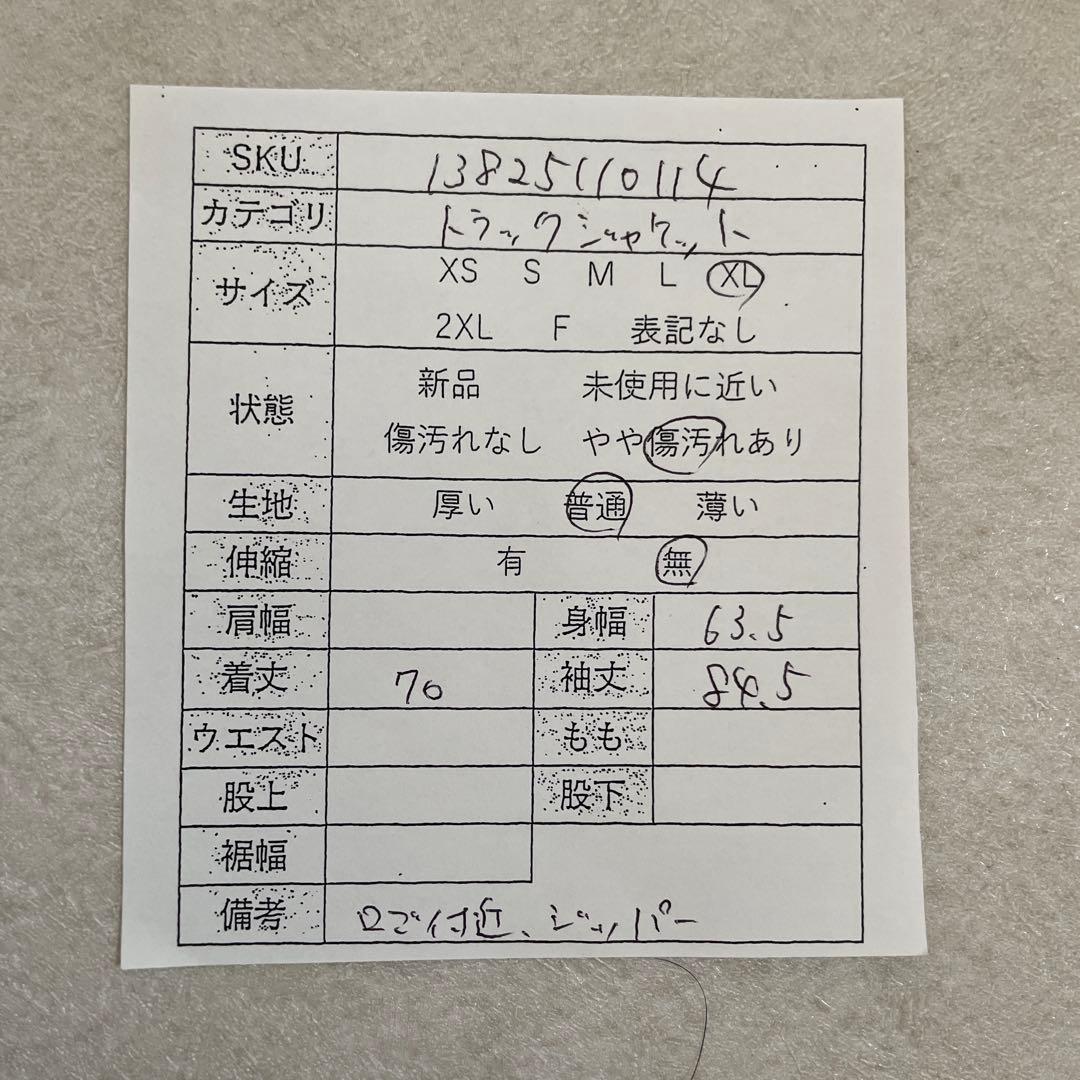 SKU 13825110114
カテゴリ トラックジャケット
サイズ XS S M L XL
2XL F 表記なし
状態 新品 未使用に近い
傷汚れなし やや傷汚れあり
生地 厚い 普通 薄い
伸縮 有 無
肩幅 身幅 63.5
着丈 70 袖丈 84.5
ウエスト もも
股上 股下
裾幅
備考 ロゴ付近、ジッパー